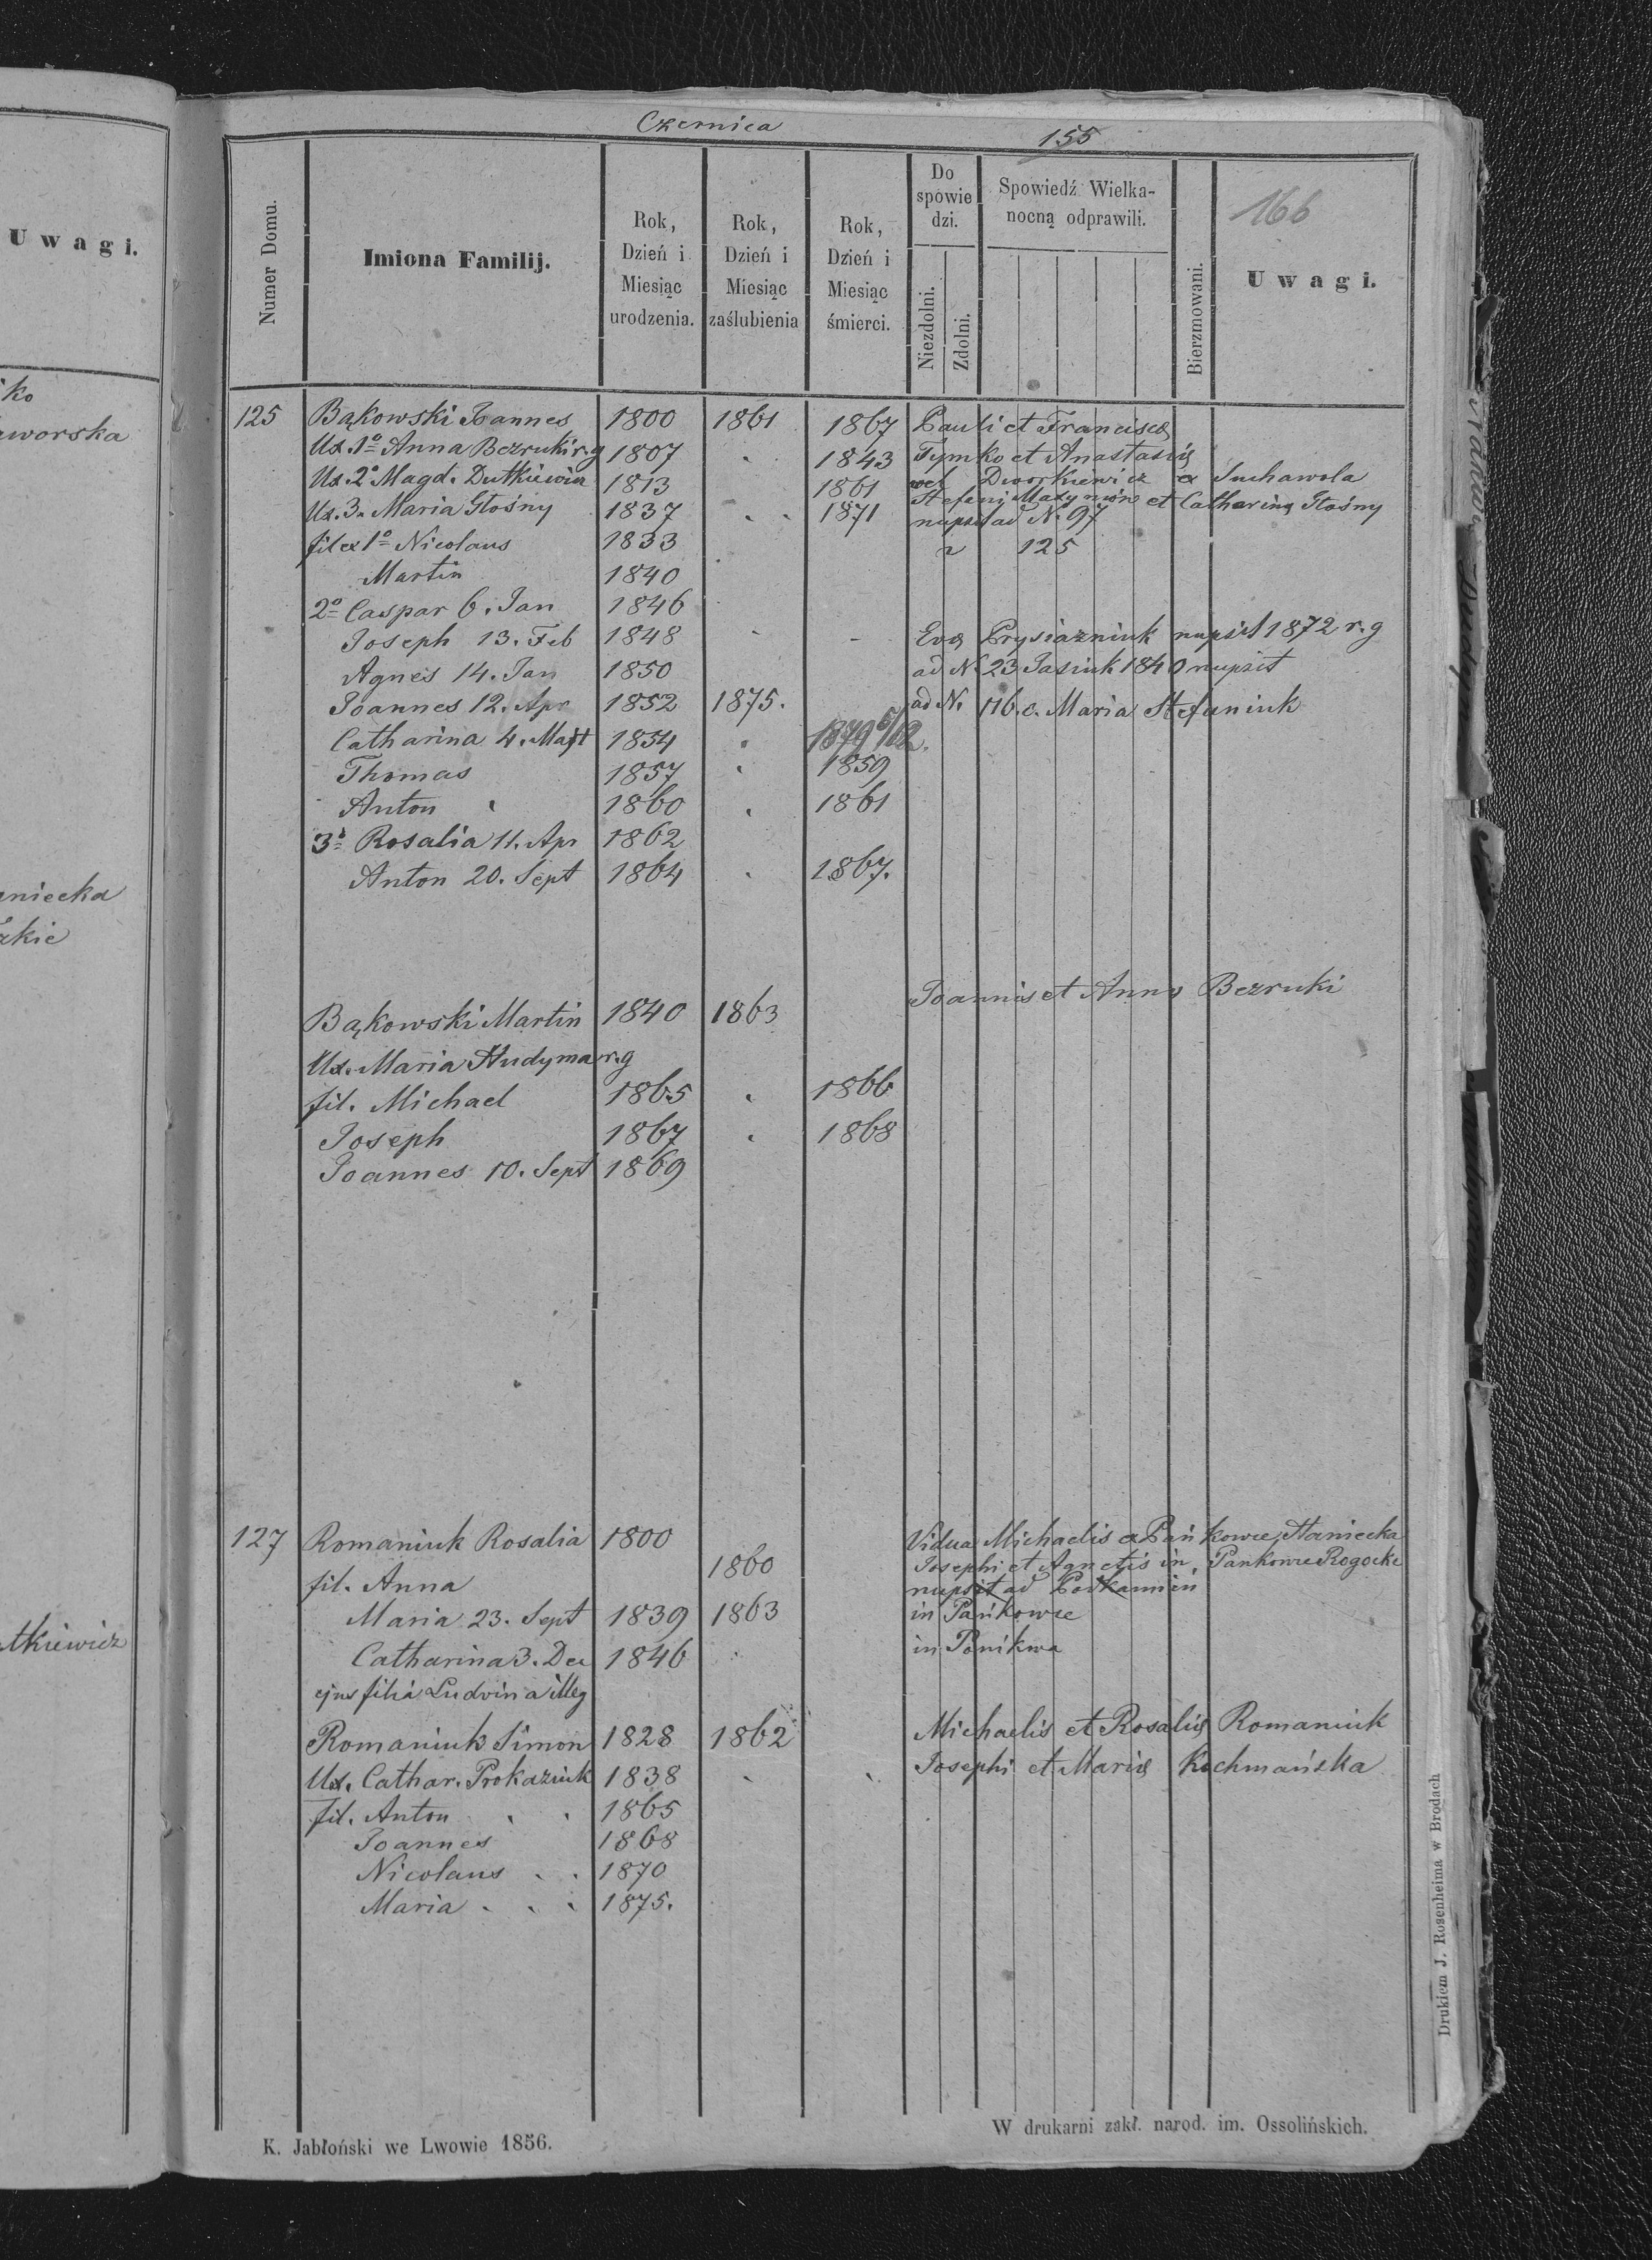 Czernica
155
166
Uwagi.
Numer Domu.
Imiona Familij.
Rok, Dzień i Miesiąc urodzenia.
Rok, Dzień i Miesiąc zaślubienia
Rok, Dzień i Miesiąc śmierci.
Do spowie dzi.
Niezdolni.
Zdolni.
Spowiedź Wielka-
nocną odprawili.
Bierzmowani.
Uwagi.
ko
aworska
aniecka
zkie
utkiewicz
125 Bąkowski Joannes 1800 1861 1867 Pauli et Franciscę
Ux. 1º Anna Bezruki r.g 1807 1843 Tymko et Anastasię
Ux. 2º Magd. Dutkiewicz 1813 1861 vel Dworkiewicz ex Suchawola
Stefani et Catharinę Głośny
Ux. 3. Maria Głośny 1837 1871 nupsit ad N. 97
fil ex 1º Nicolaus 1833 125
Martin 1840
2º Caspar 6. Jan 1846
Joseph 13. Feb 1848 Evę Prysiazniuk nupsit 1872 r.g
Agnes 14. Jan 1850 ad N. 23 Jasiuk 1840 nupsit
Joannes 12. Apr 1852 1875. ad N. 116. c. Maria Stefaniuk
Catharina 4. 1854 1879
Thomas 1857 1859
Anton 1860 1861
3º Rosalia 11. Apr 1862
Anton 20. Sept 1864 1867.
Bąkowski Martin 1840 1863 Joannis et Annę Bezruki
Ux. Maria Hudyma r.g
fil. Michael 1865 1866
Joseph 1867 1868
Joannes 10. Sept 1869
127 Romaniuk Rosalia 1800 Vidua Michaelis a Pańkowce Haniecka
Josephi et Agnetis in Pankowce
fil. Anna 1860 nupsit ad Podkamień
Maria 23. Sept 1839 1863 in Pańkowce
Catharina 3. Dec 1846 in Ponikwa
ejus filia Ludvina illeg
Romaniuk Simon 1828 1862 Michaelis et Rosalię Romaniuk
Ux. Cathar. Prokaziuk 1838 Josephi et Marię Kochmańska
fil. Anton 1865
Joannes 1868
Nicolaus 1870
Maria 1875.
K. Jabłoński we Lwowie 1856.
W drukarni zakł. narod. im. Ossolińskich.
Drukiem J. Rosenheima w Brodach